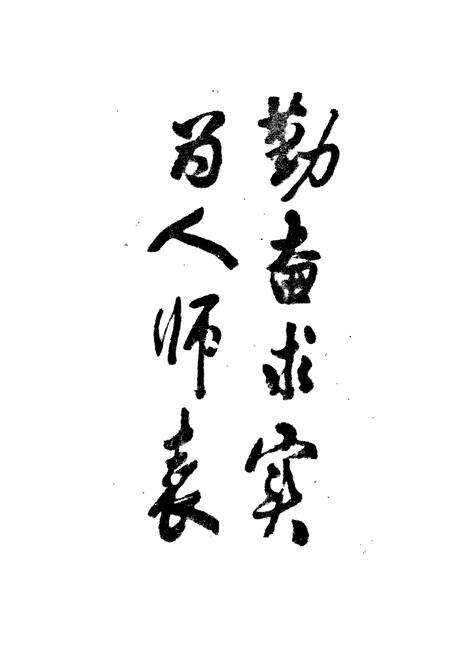 勤奋求实
为人师表